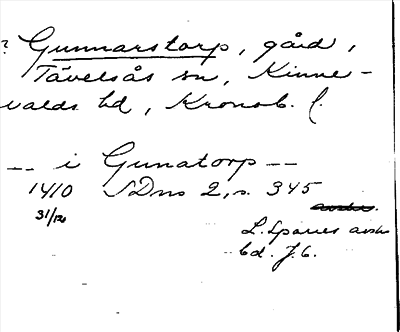 ? Gunnarstorp, gård,
Tävelsås sn, Kinne-
valds hd, Kronob. l.
-- i Gunatorp --
1410 SDns 2, s. 345
31/12
L. Sparres avskr.
bd. J. 6.